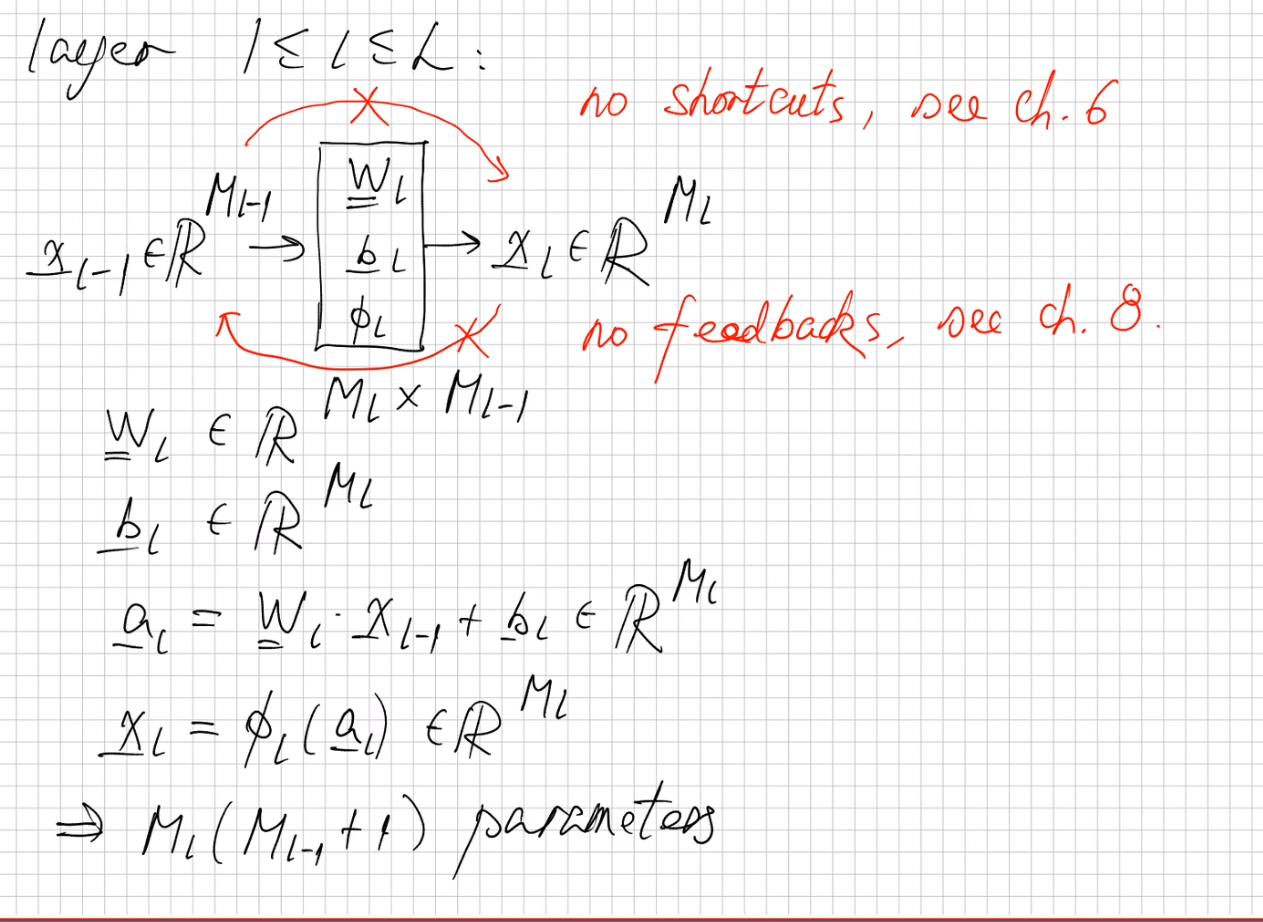 layer 1 ≤ l ≤ L :
no shortcuts, see ch. 6
x̲_{l-1} ∈ ℝ^{M_{l-1}} → W̳_l b̲_l ϕ_l → x̲_l ∈ ℝ^{M_l}
no feedbacks, see ch. 8.
W̳_l ∈ ℝ^{M_l × M_{l-1}}
b̲_l ∈ ℝ^{M_l}
a̲_l = W̳_l · x̲_{l-1} + b̲_l ∈ ℝ^{M_l}
x̲_l = ϕ_l(a̲_l) ∈ ℝ^{M_l}
⇒ M_l(M_{l-1} + 1) parameters